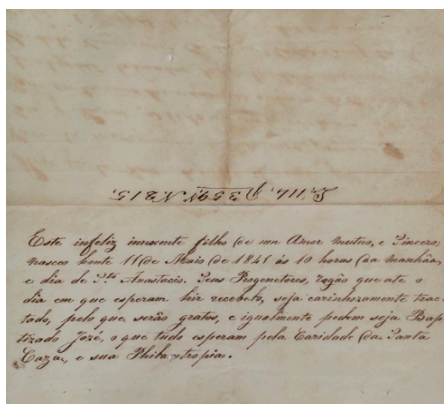 L. 114, P 359 V. N. 215,
Este infeliz innocente filho (de um Amor mutuo, e Sincero,
nasceu houte 11 (de Maio (de 1841 ás 10 horas (da manhãa,
e dia de Sto Anastacio. Seus Progenetores, rogão que até o
dia em que esperam hir recebelo, seja carinhozamente trac
tado, pelo que serão gratos, e igualmente pedem seja Bap
tizado Jozé, o que tudo esperam pela Caridade (da Santa
Caza, e sua Philantropia.